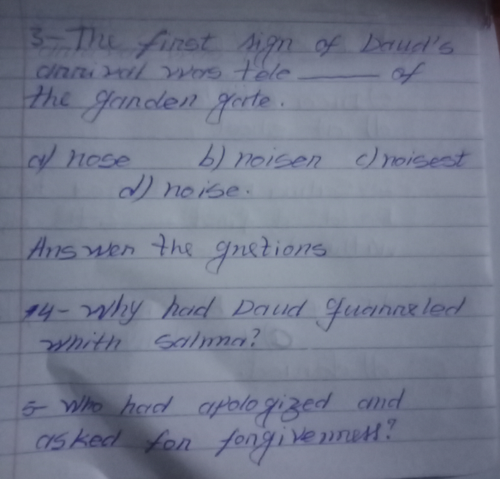 3- The first sign of Daud's
arrival was tele ____ of
the garden gate.
a) nose b) noisen c) noisest
d) noise.
Answer the qnetions
14- Why had Daud quanreled
whith salma?
5- Who had apologized and
asked for forgivenness?